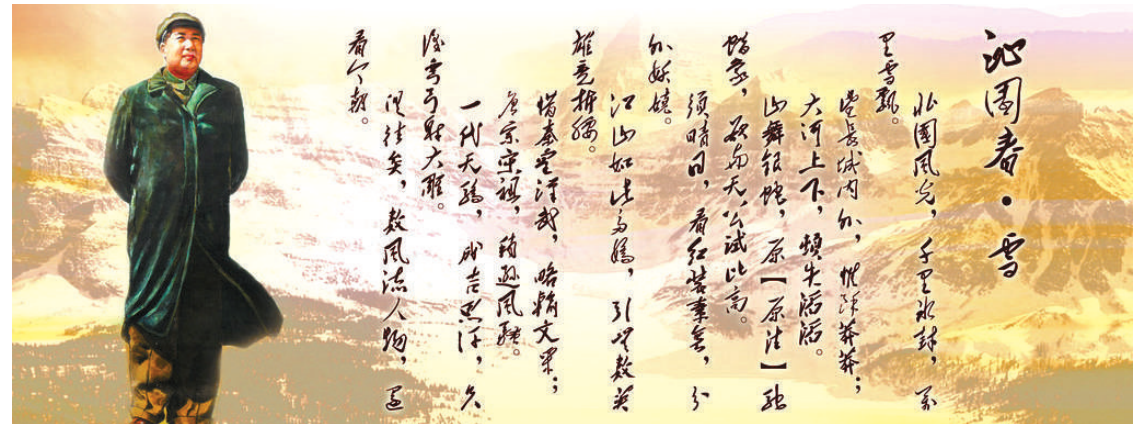 沁园春·雪
北国风光，千里冰封，万
里雪飘。
望长城内外，惟馀莽莽；
大河上下，顿失滔滔。
山舞银蛇，原【原注】驰
蜡象，欲与天公试比高。
须晴日，看红装素裹，分
外妖娆。
江山如此多娇，引无数英
雄竞折腰。
惜秦皇汉武，略输文采；
唐宗宋祖，稍逊风骚。
一代天骄，成吉思汗，只
识弯弓射大雕。
俱往矣，数风流人物，还
看今朝。